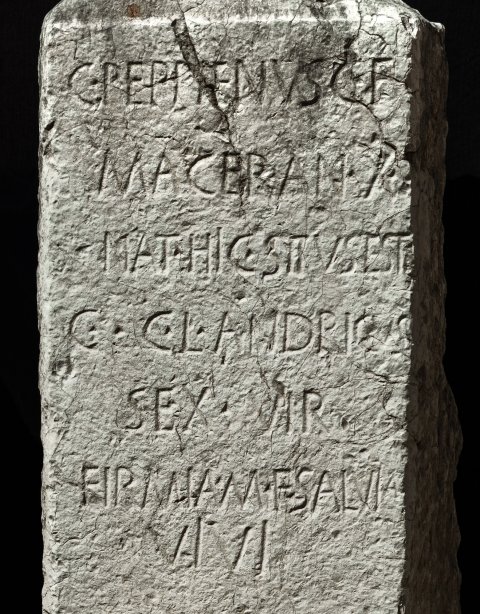 C·REPPIENIVS·C·F
MACERAN·X
NAT·HIC·SITVS·EST
C·C·L·ANDRICVS
SEX·VIR
FIRMIA·M·F·SALVIA
VIVI